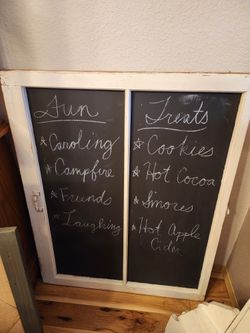 Fun
* Caroling
* Campfire
* Friends
* Laughing
Treats
* Cookies
* Hot Cocoa
* Smores
* Hot Apple
Cider